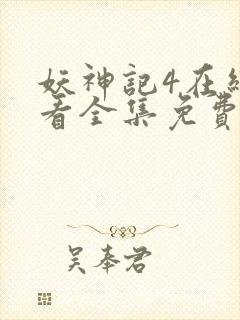 妖神記4在線
看全集免費
吴奉君